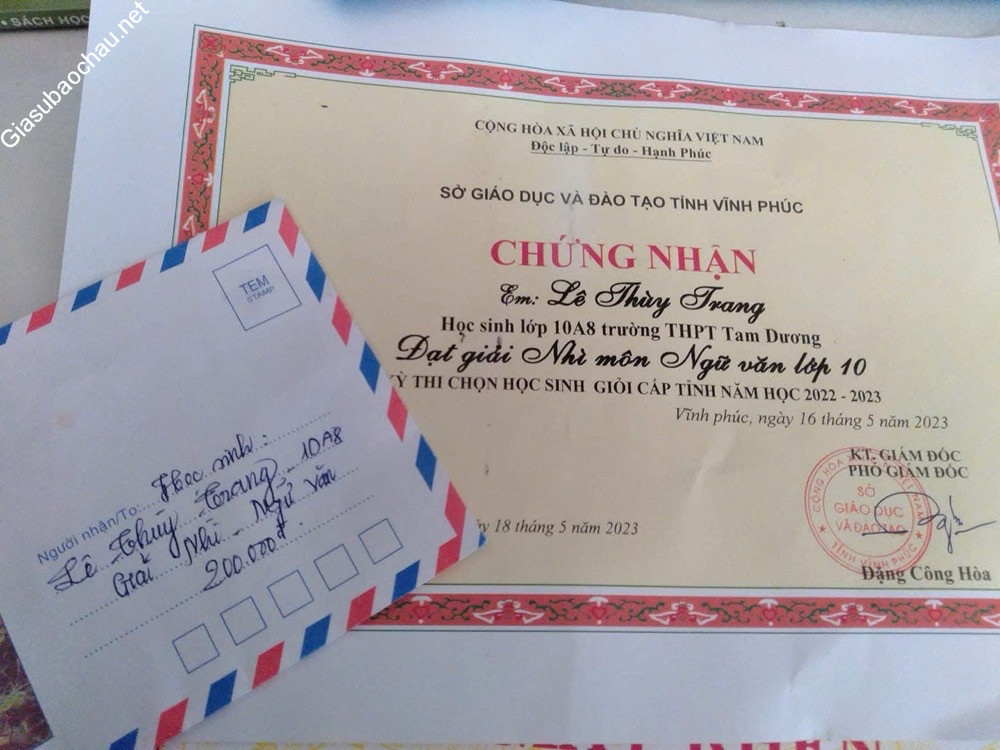 SÁCH HỌC
Giasubaochau.net
CỘNG HÒA XÃ HỘI CHỦ NGHĨA VIỆT NAM
Độc lập - Tự do - Hạnh Phúc
SỞ GIÁO DỤC VÀ ĐÀO TẠO TỈNH VĨNH PHÚC
CHỨNG NHẬN
Em: Lê Thùy Trang
Học sinh lớp 10A8 trường THPT Tam Dương
Đạt giải Nhì môn Ngữ văn lớp 10
KỲ THI CHỌN HỌC SINH GIỎI CẤP TỈNH NĂM HỌC 2022 - 2023
Vĩnh phúc, ngày 16 tháng 5 năm 2023
KT. GIÁM ĐỐC
PHÓ GIÁM ĐỐC
SỞ
GIÁO DỤC
VÀ ĐÀO TẠO
TỈNH VĨNH PHÚC
Đặng Công Hòa
18 tháng 5 năm 2023
TEM
STAMP
Người nhận/To Học sinh:
Lê Thùy Trang 10A8
Giải Nhì Ngữ Văn
200.000đ